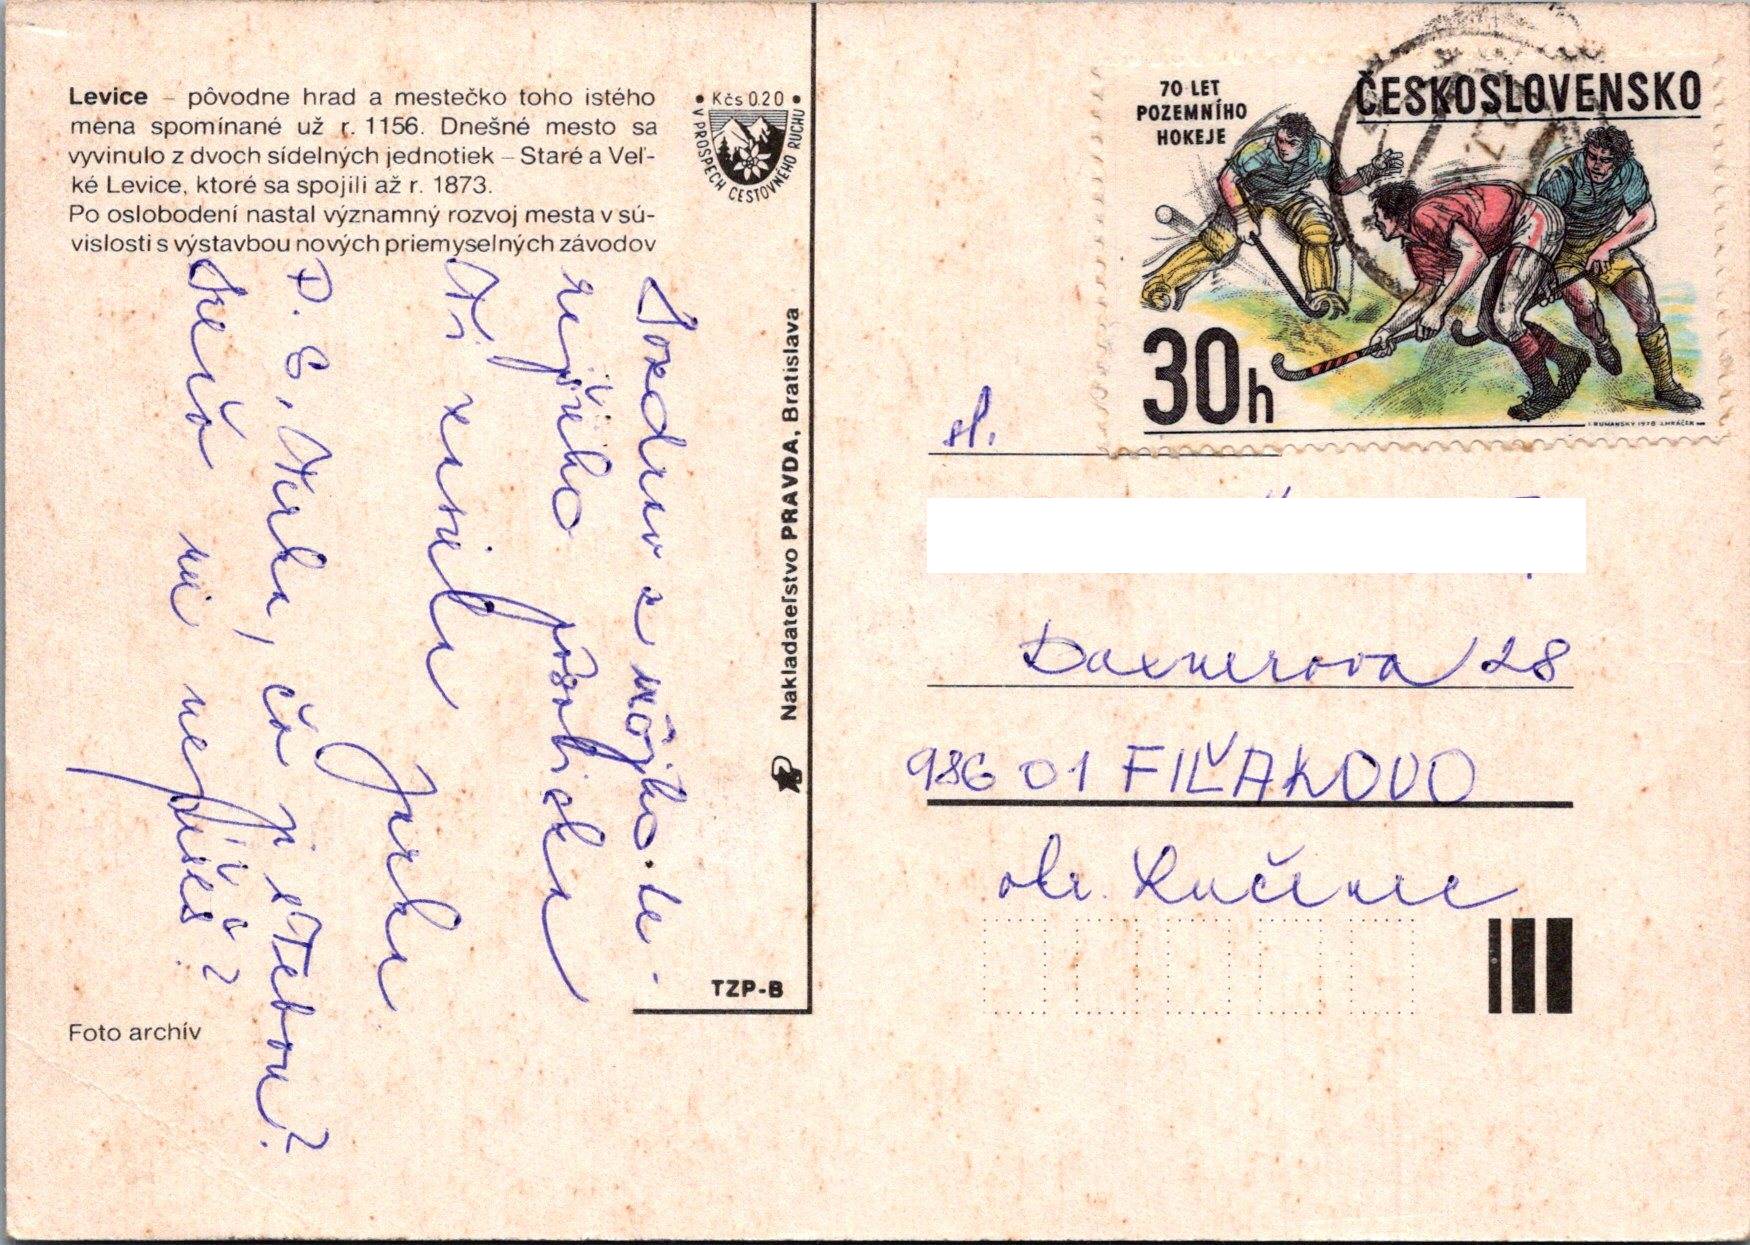 Levice – pôvodne hrad a mestečko toho istého
mena spomínané už r. 1156. Dnešné mesto sa
vyvinulo z dvoch sídelných jednotiek – Staré a Veľ-
ké Levice, ktoré sa spojili až r. 1873.
Po oslobodení nastal významný rozvoj mesta v sú-
vislosti s výstavbou nových priemyselných závodov
• Kčs 0.20 •
V PROSPECH CESTOVNÉHO RUCHU
Pozdrav z môjho te-
rajšieho pôsobiska
Ti
Jarka
P. S. čo je s Tebou?
mi nepíšeš?
Foto archív
Nakladateľstvo PRAVDA, Bratislava
TZP-B
70 LET
POZEMNÍHO
HOKEJE
ČESKOSLOVENSKO
30h
I. RUMANSKÝ 1978 J. MRÁČEK
sl.
Daxnerova 28
986 01 FIĽAKOVO
okr. Lučenec